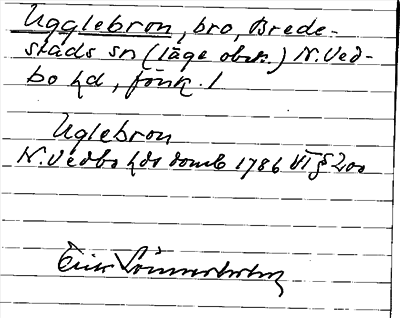 Ugglebron, bro, Brede-
stads sn (läge obek.) N. Ved-
bo hd, förk. 1
Uglebron
N. Vedbo hds domb 1786 VI § 200
Erik